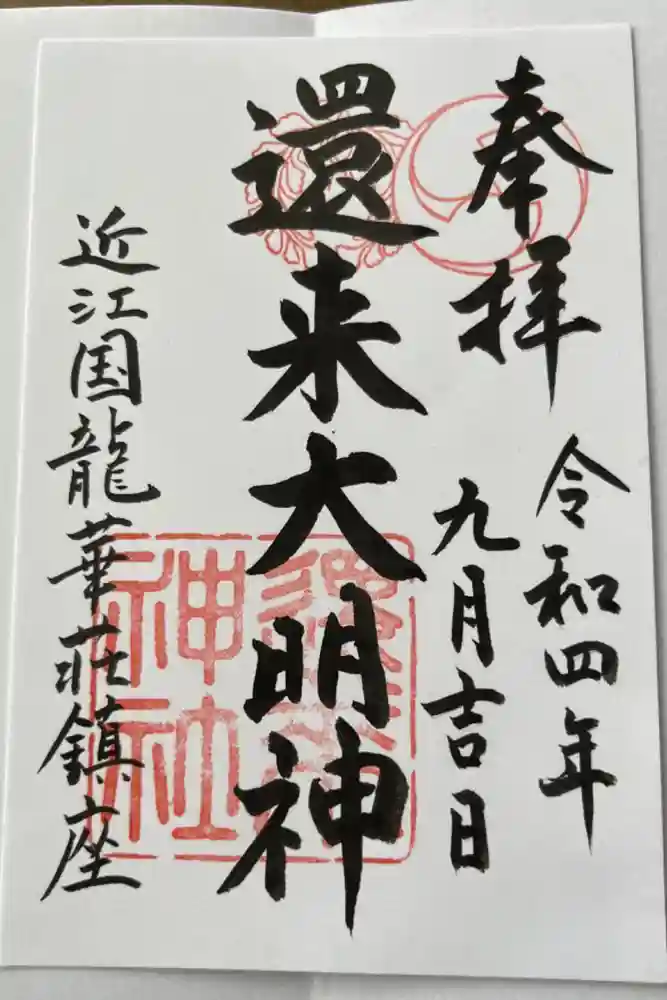 奉拝
令和四年
九月吉日
還来大明神
還来
神社
近江国龍華荘鎮座